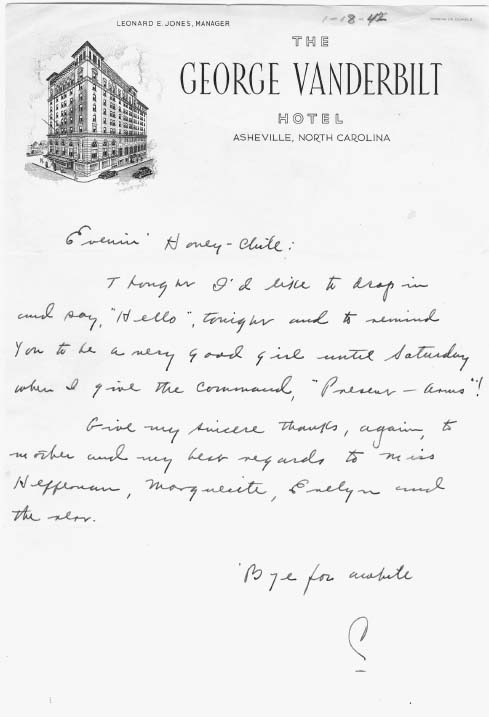 LEONARD E. JONES, MANAGER
1-18-42
THE
GEORGE VANDERBILT
HOTEL
ASHEVILLE, NORTH CAROLINA
Evenin' Honey-Chile:
Thought I'd like to drop in
and say, "Hello", tonight and to remind
you to be a very good girl until Saturday
when I give the command, "Present-arms"!
Give my sincere thanks, again, to
mother and my best regards to Miss
Heffernan, Marguerite, Evelyn and
the rest.
'Bye for awhile